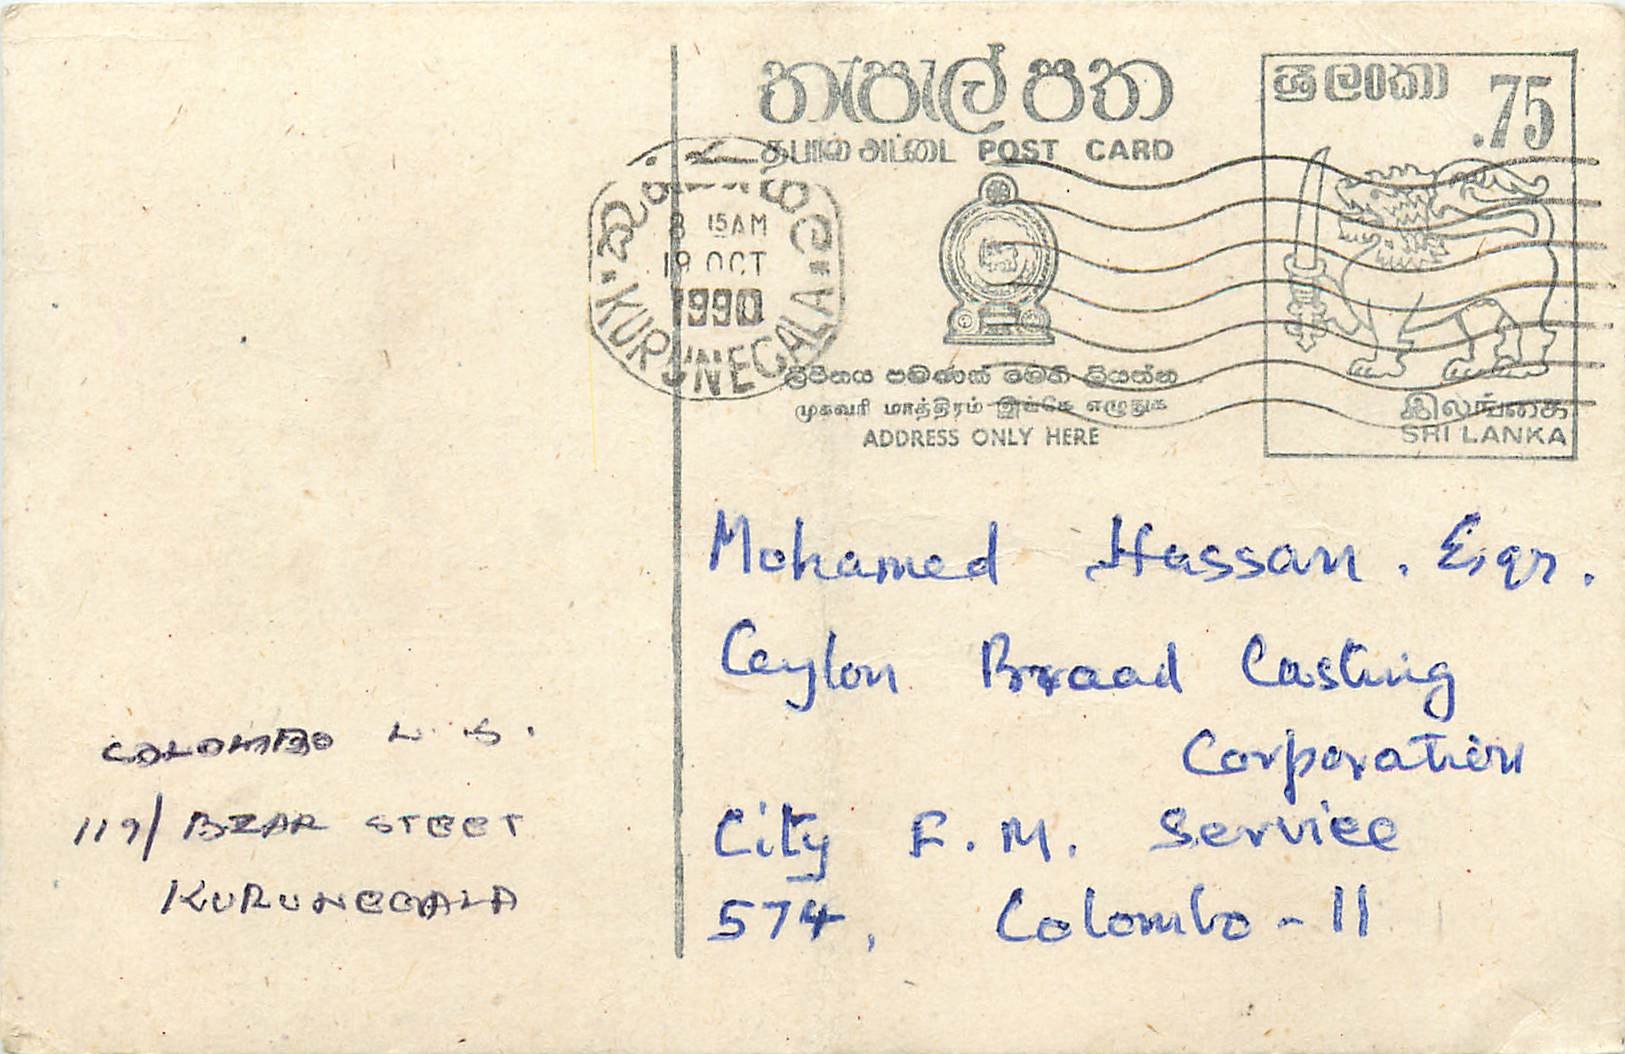 තැපැල් පත
தபால் அட்டை POST CARD
ශ්‍රී ලංකා .75
இலங்கை
SRI LANKA
කුරුණෑගල
8 15AM
19 OCT
1990
KURUNEGALA
ලිපිනය පමණක් මෙහි ලියන්න
முகவரி மாத்திரம் இங்கே எழுதுக
ADDRESS ONLY HERE
Mohamed Hassan. Esqr.
Ceylon Broad Casting
Corporation
City F.M. Service
574, Colombo - 11
COLOMBO L.S.
119/ BZAR STEET
KURUNEGALA